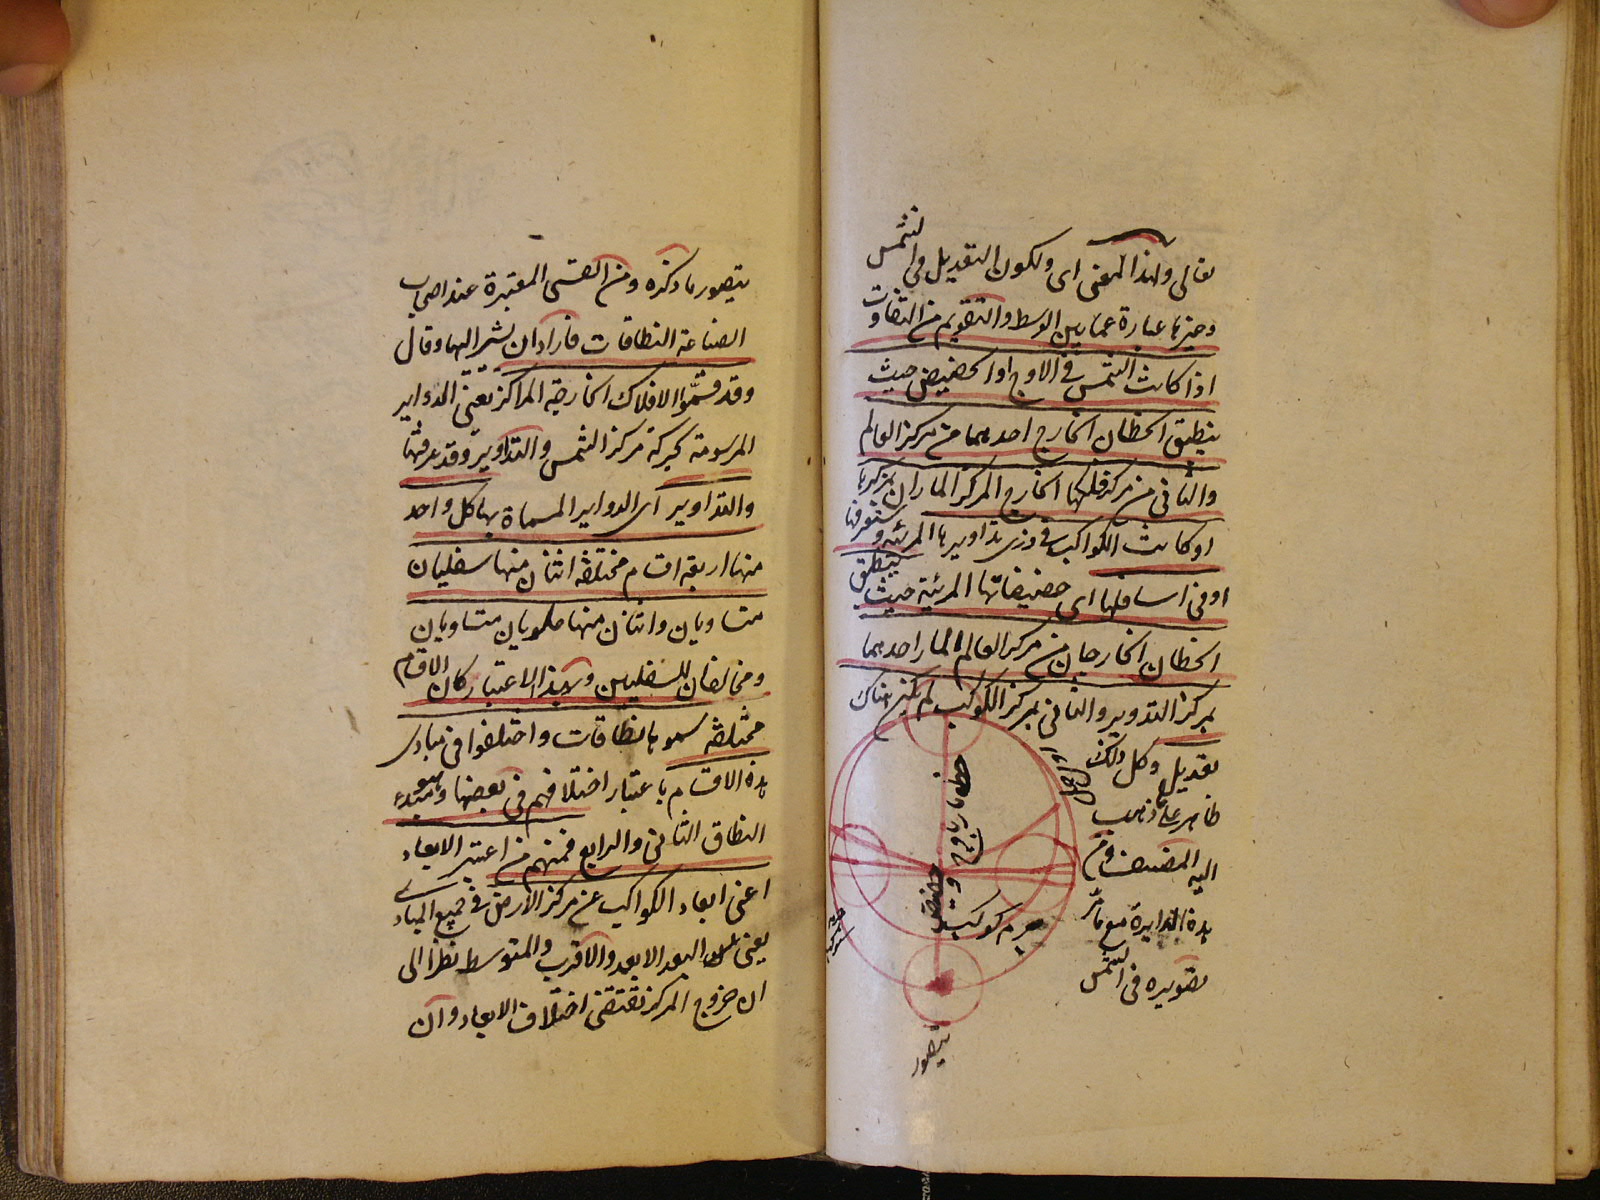 تعالى ولهذا المعنى اى ولكون التعديل فى الشمس
وغيرها عبارة عما بين الوسط والتقويم من التفاوت
اذا كانت الشمس فى الاوج او الحضيض حيث
ينطبق الخطان الخارج احدهما من مركز العالم
والثانى من مركز فلكها الخارج المركز الماران بمركزها
او كانت الكواكب فى ذرى تداويرها المرئية وستعرفها
او فى اسافلها اى حضيضاتها المرئية حيث ينطبق
الخطان الخارجان من مركز العالم المار احدهما
بمركز التدوير والثانى بمركز الكوكب لم يكن هناك
تعديل وكل ذلك
ظاهر على ما ذهب
اليه المصنف ومن
هذه الدايرة مع ما مر
تصويره فى الشمس
خط مار باوج
و حضيض
جرم كوكب
يتصور
يتصور ما ذكره ومن القسى المعتبرة عند اصحاب
الصناعة النطاقات فاراد ان يشير اليها وقال
وقد قسموا الافلاك الخارجة المراكز يعنى الدواير
المرسومة بحركة مركز الشمس والتداوير وقد عرفتها
والتداوير اى الدواير المسماة بها كل واحد
منها اربعة اقسام مختلفة اثنان منها سفليان
متساويان واثنان منها علويان متساويان
ومخالفان للسفليين ولهذا الاعتبار كان الاقسام
مختلفة سموها نطاقات واختلفوا فى مبادى
هذه الاقسام باعتبار اختلافهم فى بعضها وهو مبدء
النطاق الثانى والرابع فمنهم من اعتبر الابعاد
اعنى ابعاد الكواكب عن مركز الارض فى جميع المبادى
يعنى البعد الابعد والاقرب والمتوسط نظرا الى
ان خروج المركز تقتضى اختلاف الابعاد وان